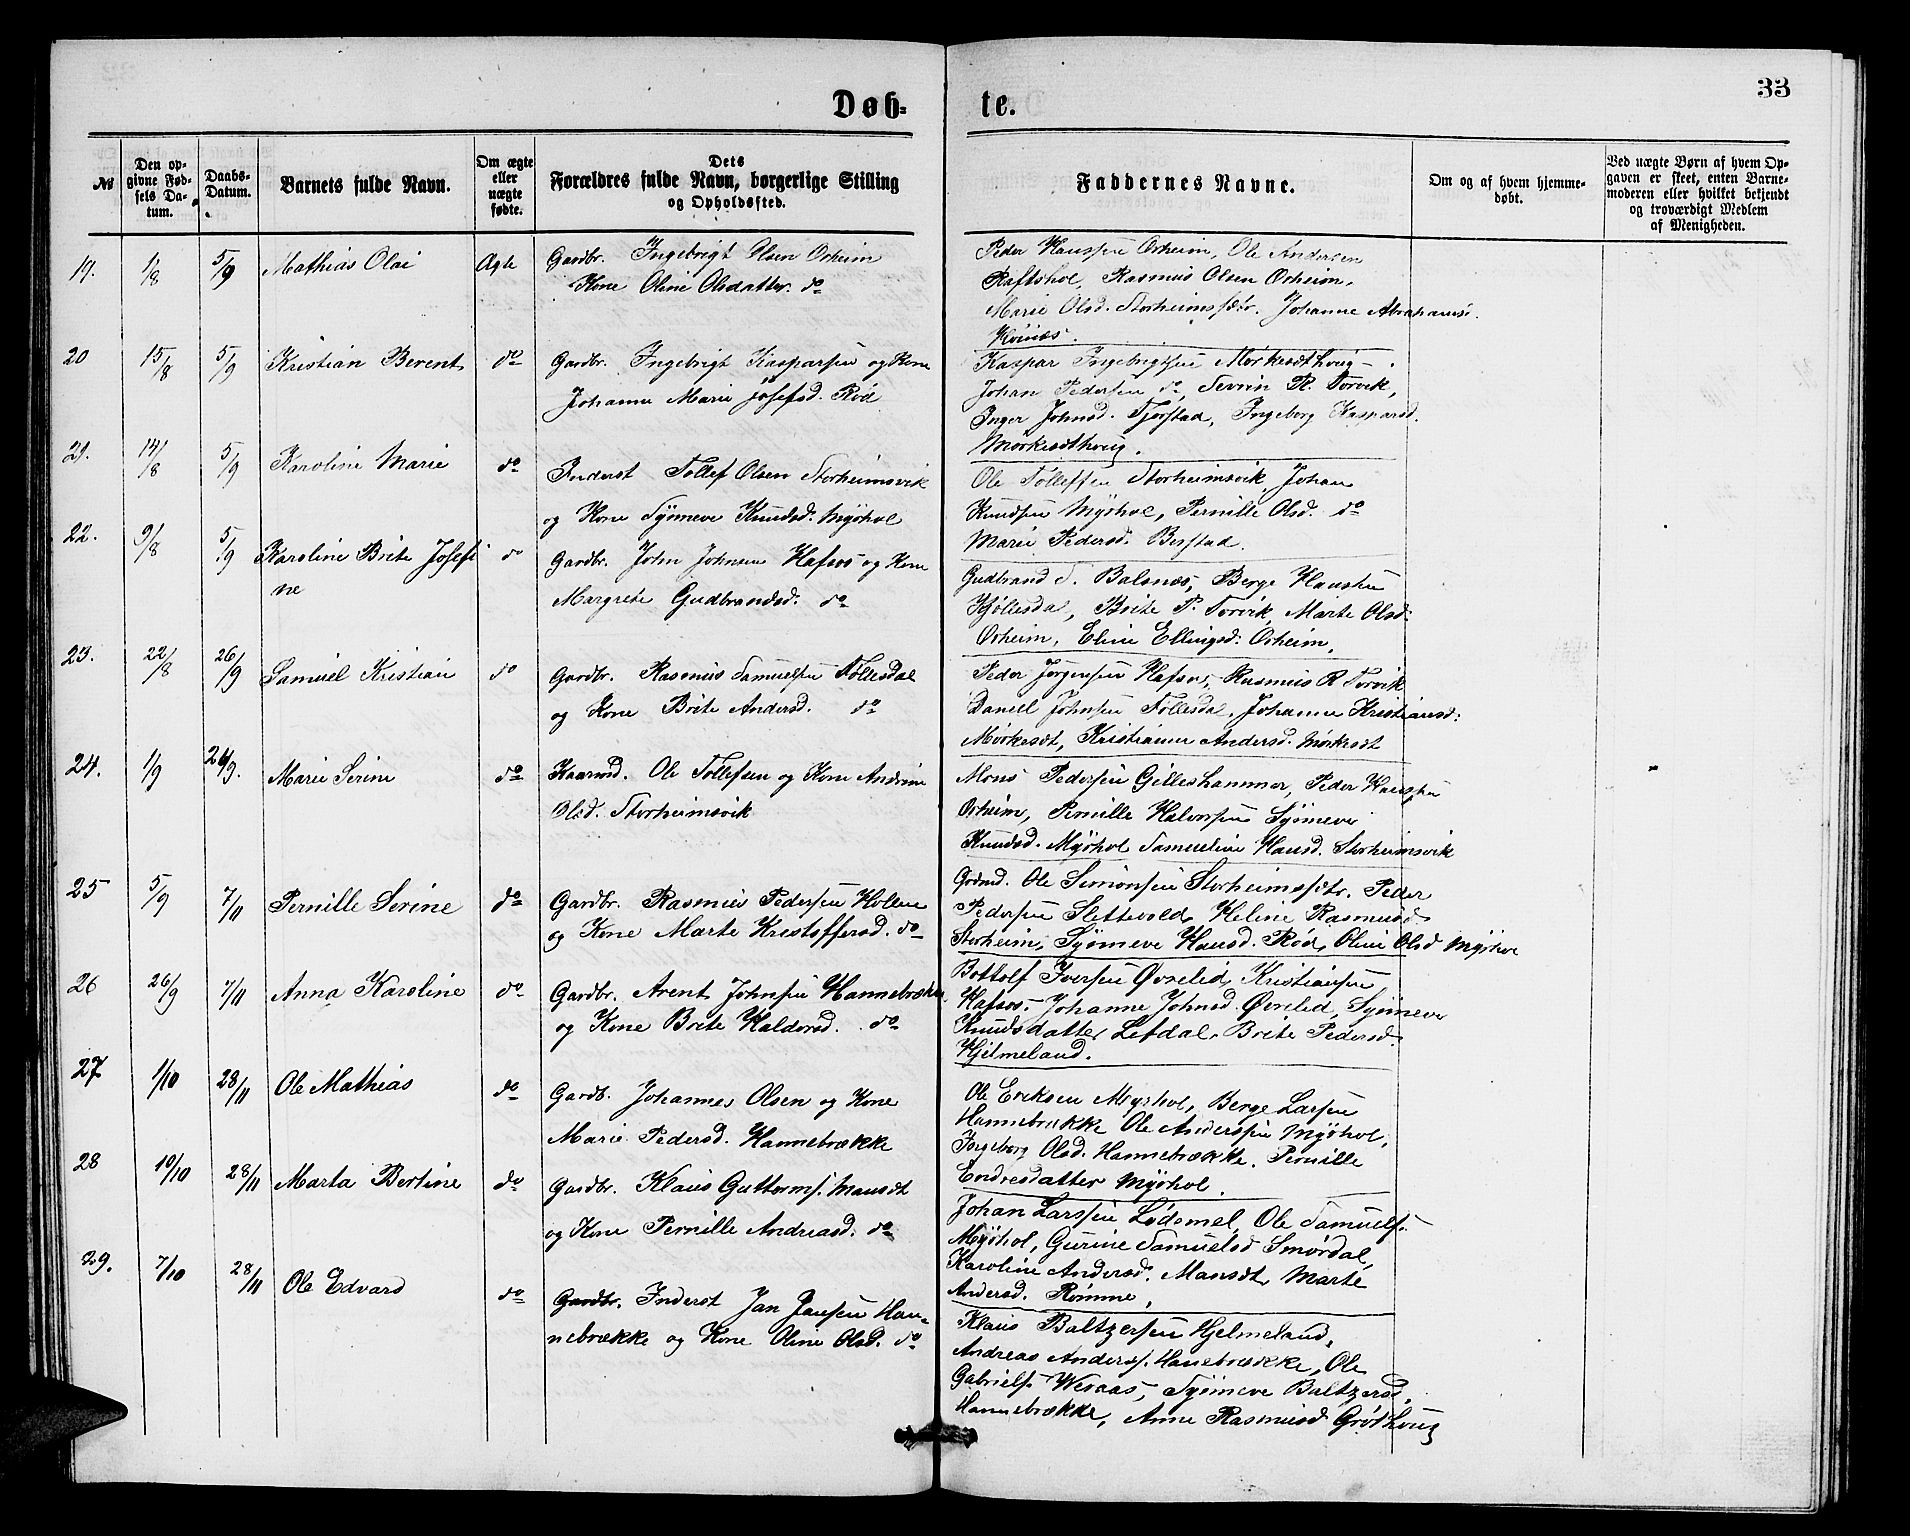 33
Døb-
te.
№
Den op-
givne Fød-
sels Da-
tum.
Daabs-
Datum.
Barnets fulde Navn.
Om ægte
eller
uægte
fødte.
Dets
Forældres fulde Navn, borgerlige Stilling
og Opholdssted.
Faddernes Navne.
Om og af hvem hjemme-
døbt.
Ved uægte Børn af hvem Op-
gaven er skeet, enten Barne-
moderen eller hvilket bekjendt
og troværdigt Medlem
af Menigheden.
19. 1/8 5/9 Mathias Olai Ægte Gardbr. Ingebrigt Olsen Orheim
Kone Oline Olsdatter. do
Peder Hanssen Orheim, Ole Andersen
Raftshol, Rasmus Olsen Orheim,
Marie Olsd. Storheimssætr. Johanne Abrahams.
20 15/8 5/9 Kristian Berent do Gardbr. Ingebrigt Kasparsen og Kone
Johanne Marie Josefsd. Rød
Kaspar Ingebrigtsen Mørkesdthoug
Johan Pedersen do, Severin R. Torvik,
Inger Johnsd. Tjørstad, Ingeborg Kasparsd.
Mørkesdthoug.
21. 14/8 5/9 Karoline Marie do Inderst Tollef Olsen Storheimsvik
og Kone Synneve Knudsd. Myøhol
Ole Tolleffen Storheimsvik, Johan
Knudsen Myøhol, Pernille Olsd. do
Marie Pedersd. Berstad.
22. 9/8 5/9 Karoline Brite Josefi
ne do Gardbr. John Johnsen Hafsos og Kone
Margrete Gudbrandsd. do
Gudbrand S. Balsnæs, Berge Hansen
Hjøllesdal, Brite P. Torvik, Marte Olsd:
Orheim, Eline Ellingsd: Orheim,
23. 22/8 26/9 Samuel Kristian do Gardbr. Rasmus Samuelsen Tøllesdal
og Kone Brite Andersd. do
Peder Jørgensen Hafsos, Rasmus R Torvik
Daniel Johnsen Tøllesdal, Johanne Kristiansd:
Mørkesdt, Kristianne Andersd. Mørkesdt
24. 1/9 26/9. Marie Serine do Kaarmd. Ole Tollefsen og Kone Andrine
Olsd. Storheimsvik
Mons Pedersen Gilleshammer, Peder Hanssen
Orheim, Pernille Halvorsen Synneve
Knudsd. Myøhol Samueline Hansd. Storheimsvik
25 5/9 7/11 Pernille Serine do Gardbr. Rasmus Pedersen Hollene
og Kone Marte Kristoffersd. do
Grdmd. Ole Simonsen Storheimssætr. Peder
Pedersen Slettevold, Heline Rasmusd
Storheim, Synneve Hansd. Rød, Oline Olsd Myøhol
26 26/9 7/11 Anna Karoline do Gardbr. Arent Johnsen Hannebrække
og Kone Brite Haldorsd. do
Bottolf Iversen Øvrelid, Kristiansen
Hafsos, Johanne Johnsd. Øvrelid, Synneve
Knudsdatter Lefdal, Brite Pedersd.
Hjelmeland.
27 1/10 28/11 Ole Mathias do Gardb. Johannes Olsen og Kone
Marie Pedersd. Hannebrække
Ole Eriksen Myøhol, Berge Larsen
Hannebrække Ole Andersen Myøhol,
Ingeborg Olsd. Hannebrække. Pernille
Endresdatter Myøhol.
28 10/10 28/11 Marta Bertine do Gardbr. Klaus Guttorms. Mansdt
og Kone Pernille Andreasd. do
Johan Larssen Lødemel, Ole Samuels.
Myøhol, Gurine Samuelsd Smørdal,
Karoline Andersd. Mansdt, Marte
Andersd. Rømme,
29. 7/10 28/11 Ole Edvard do Gardbr. Inderst Jan Jansen Han-
nebrække og Kone Oline Olsd. do
Klaus Baltzersen Hjelmeland,
Andreas Anders. Hanebrække, Ole
Gabriels. Wesaas, Synneve Baltzersd,
Hannebrække, Anne Rasmusd Grøthoug